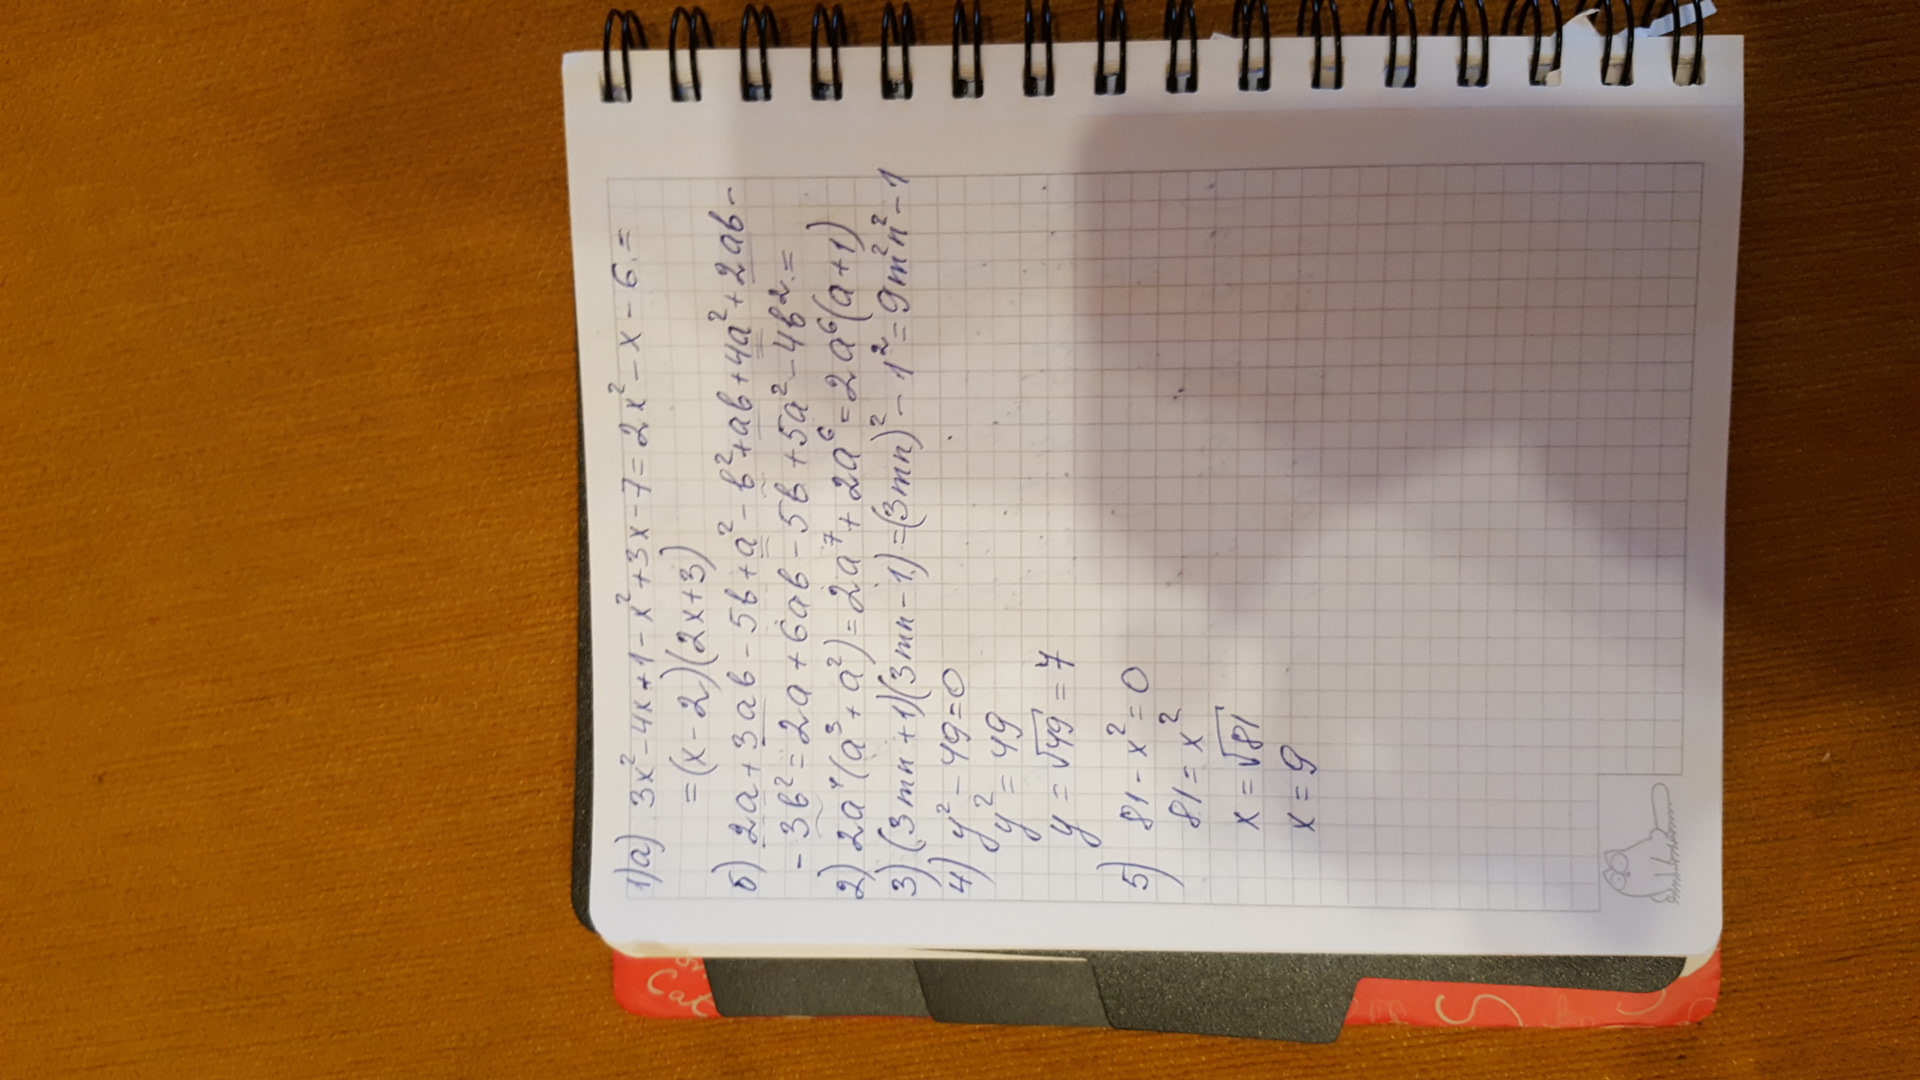 1)а) 3x² - 4x + 1 - x² + 3x - 7 = 2x² - x - 6. =
= (x - 2)(2x + 3)
б) 2a + 3ab - 5b + a² - b² + ab + 4a² + 2ab -
- 3b² = 2a + 6ab - 5b + 5a² - 4b². =
2) 2a⁴(a³ + a²) = 2a⁷ + 2a⁶ = 2a⁶(a + 1)
3) (3mn + 1)(3mn - 1) = (3mn)² - 1² = 9m²n² - 1
4) y² - 49 = 0
y² = 49
y = √49 = 7
5) 81 - x² = 0
81 = x²
x = √81
x = 9
Cat
S